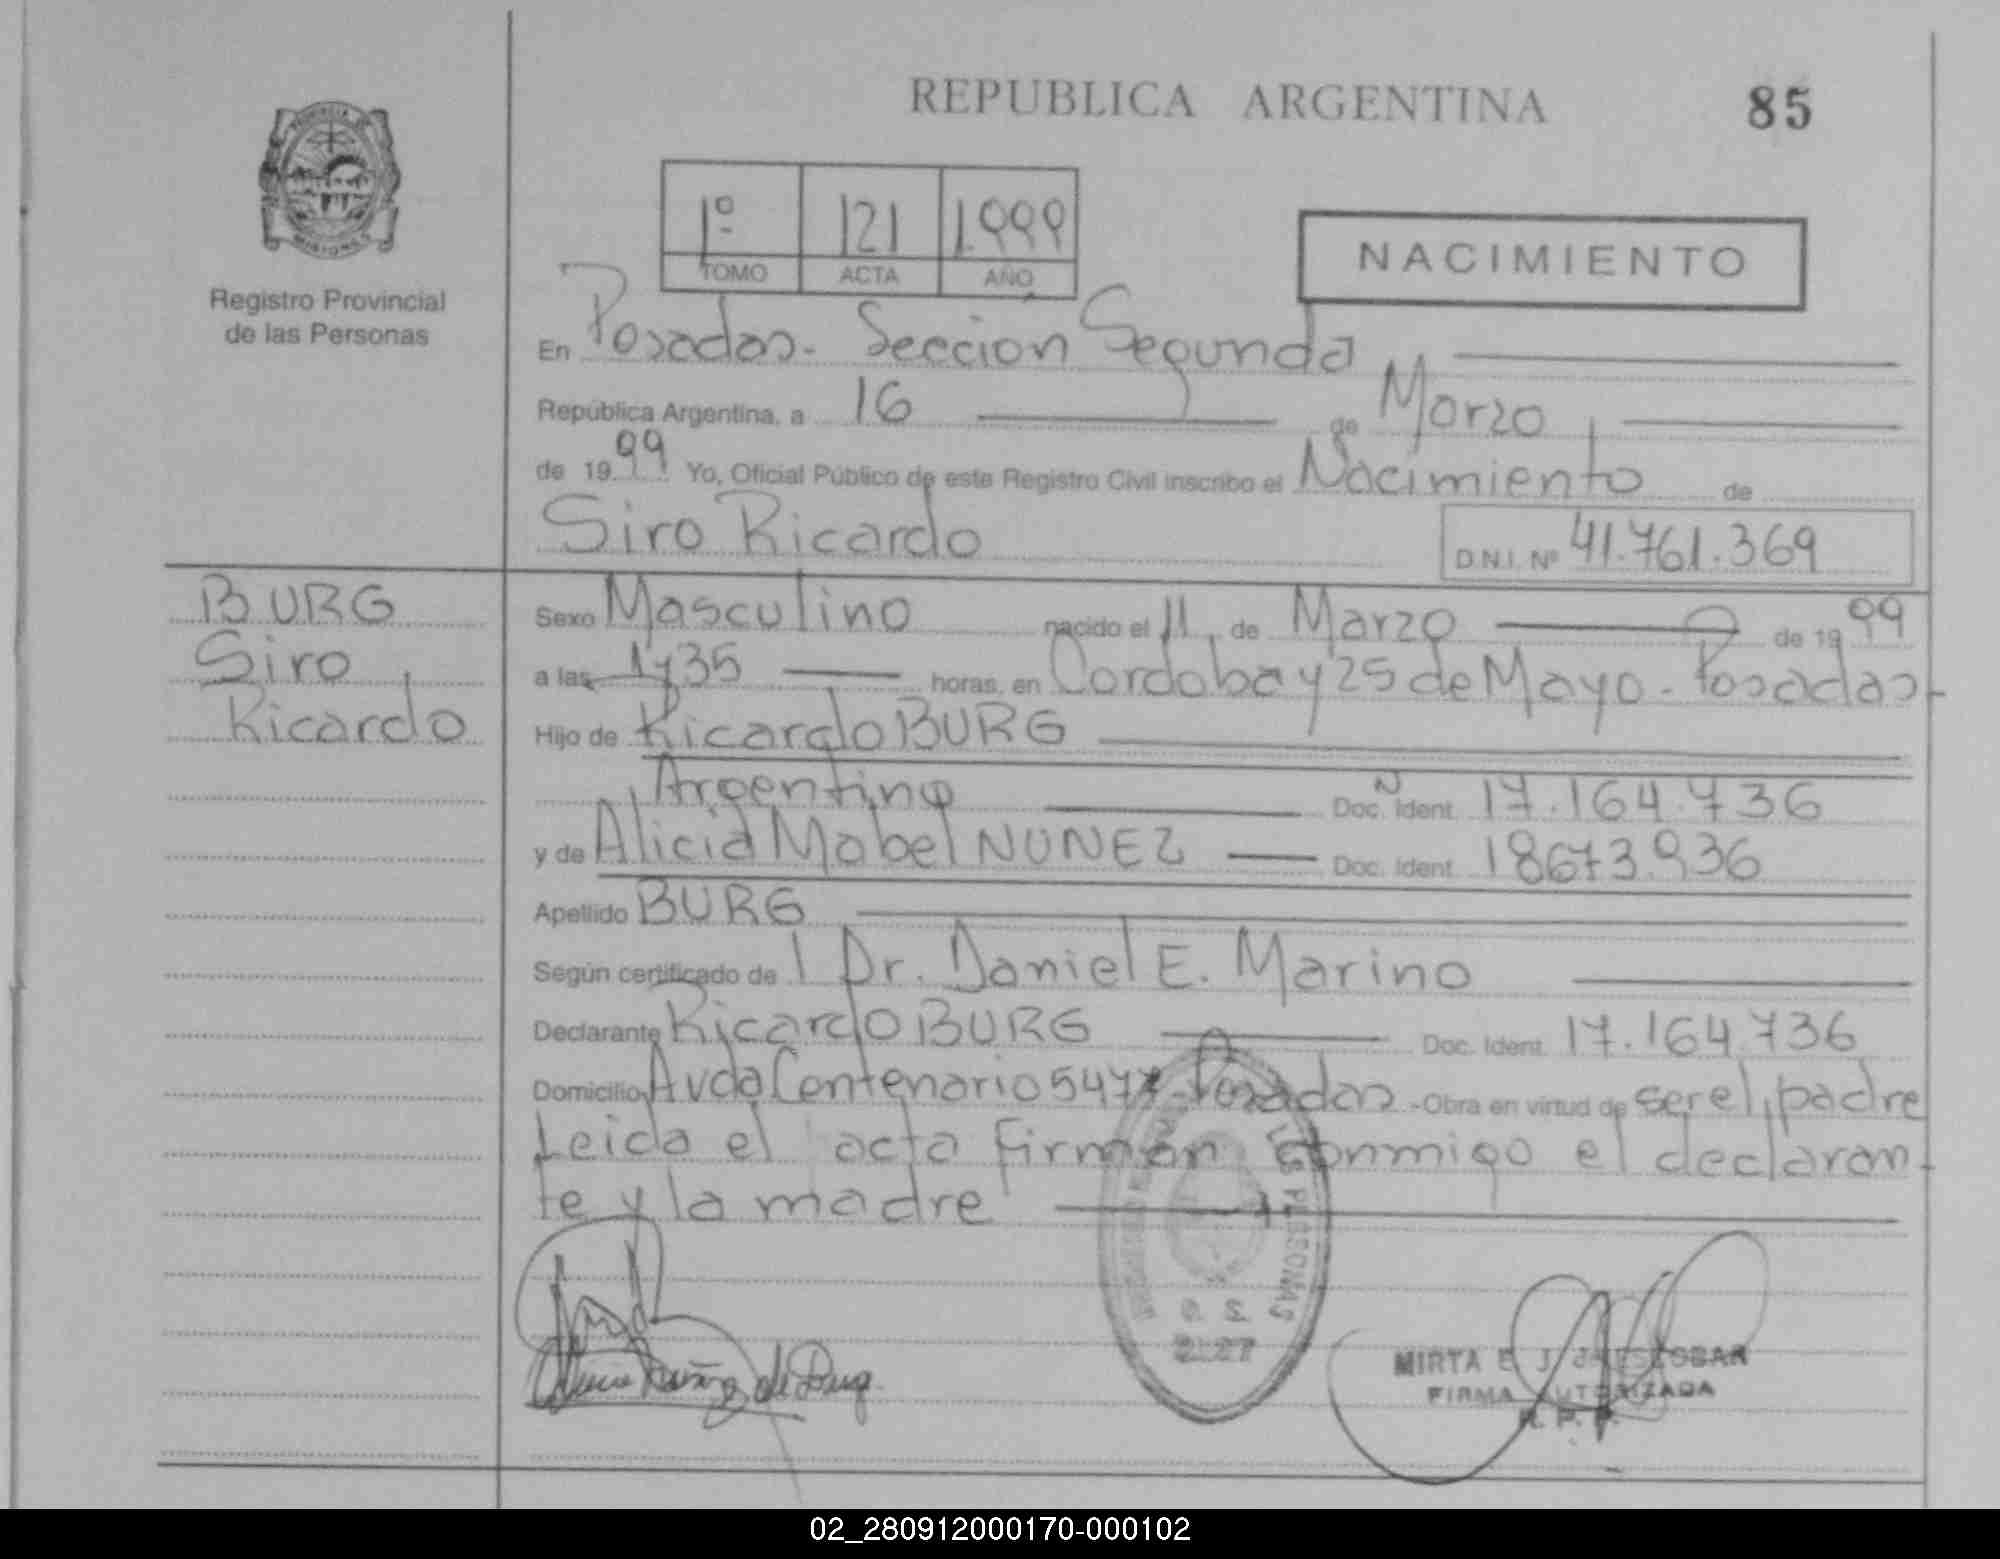 REPUBLICA ARGENTINA 85
PROVINCIA DE MISIONES
Registro Provincial
de las Personas
1º 121 1.999
TOMO ACTA AÑO
NACIMIENTO
En Posadas - Sección Segunda
República Argentina, a 16 de Marzo
de 1999 Yo, Oficial Público de este Registro Civil inscribo el Nacimiento de
Siro Ricardo D.N.I. Nº 41.761.369
BURG
Siro
Ricardo
Sexo Masculino nacido el 11 de Marzo de 1999
a las horas, en Cordoba y 25 de Mayo - Posadas-
Hijo de Ricardo BURG
Argentino Doc. Ident. 17.164.736
y de Alicia Mabel NUNEZ Doc. Ident. 18673.936
Apellido BURG
Según certificado de Dr. Daniel E. Marino
Declarante Ricardo BURG Doc. Ident. 17.164.736
Domicilio Avda Centenario 5477 - Posadas - Obra en virtud de ser el padre
Leida el acta firman conmigo el declaran-
te y la madre
PERSONAS
MIRTA E. J. de ESCOBAR
FIRMA AUTORIZADA
R. P. P.
02_280912000170-000102